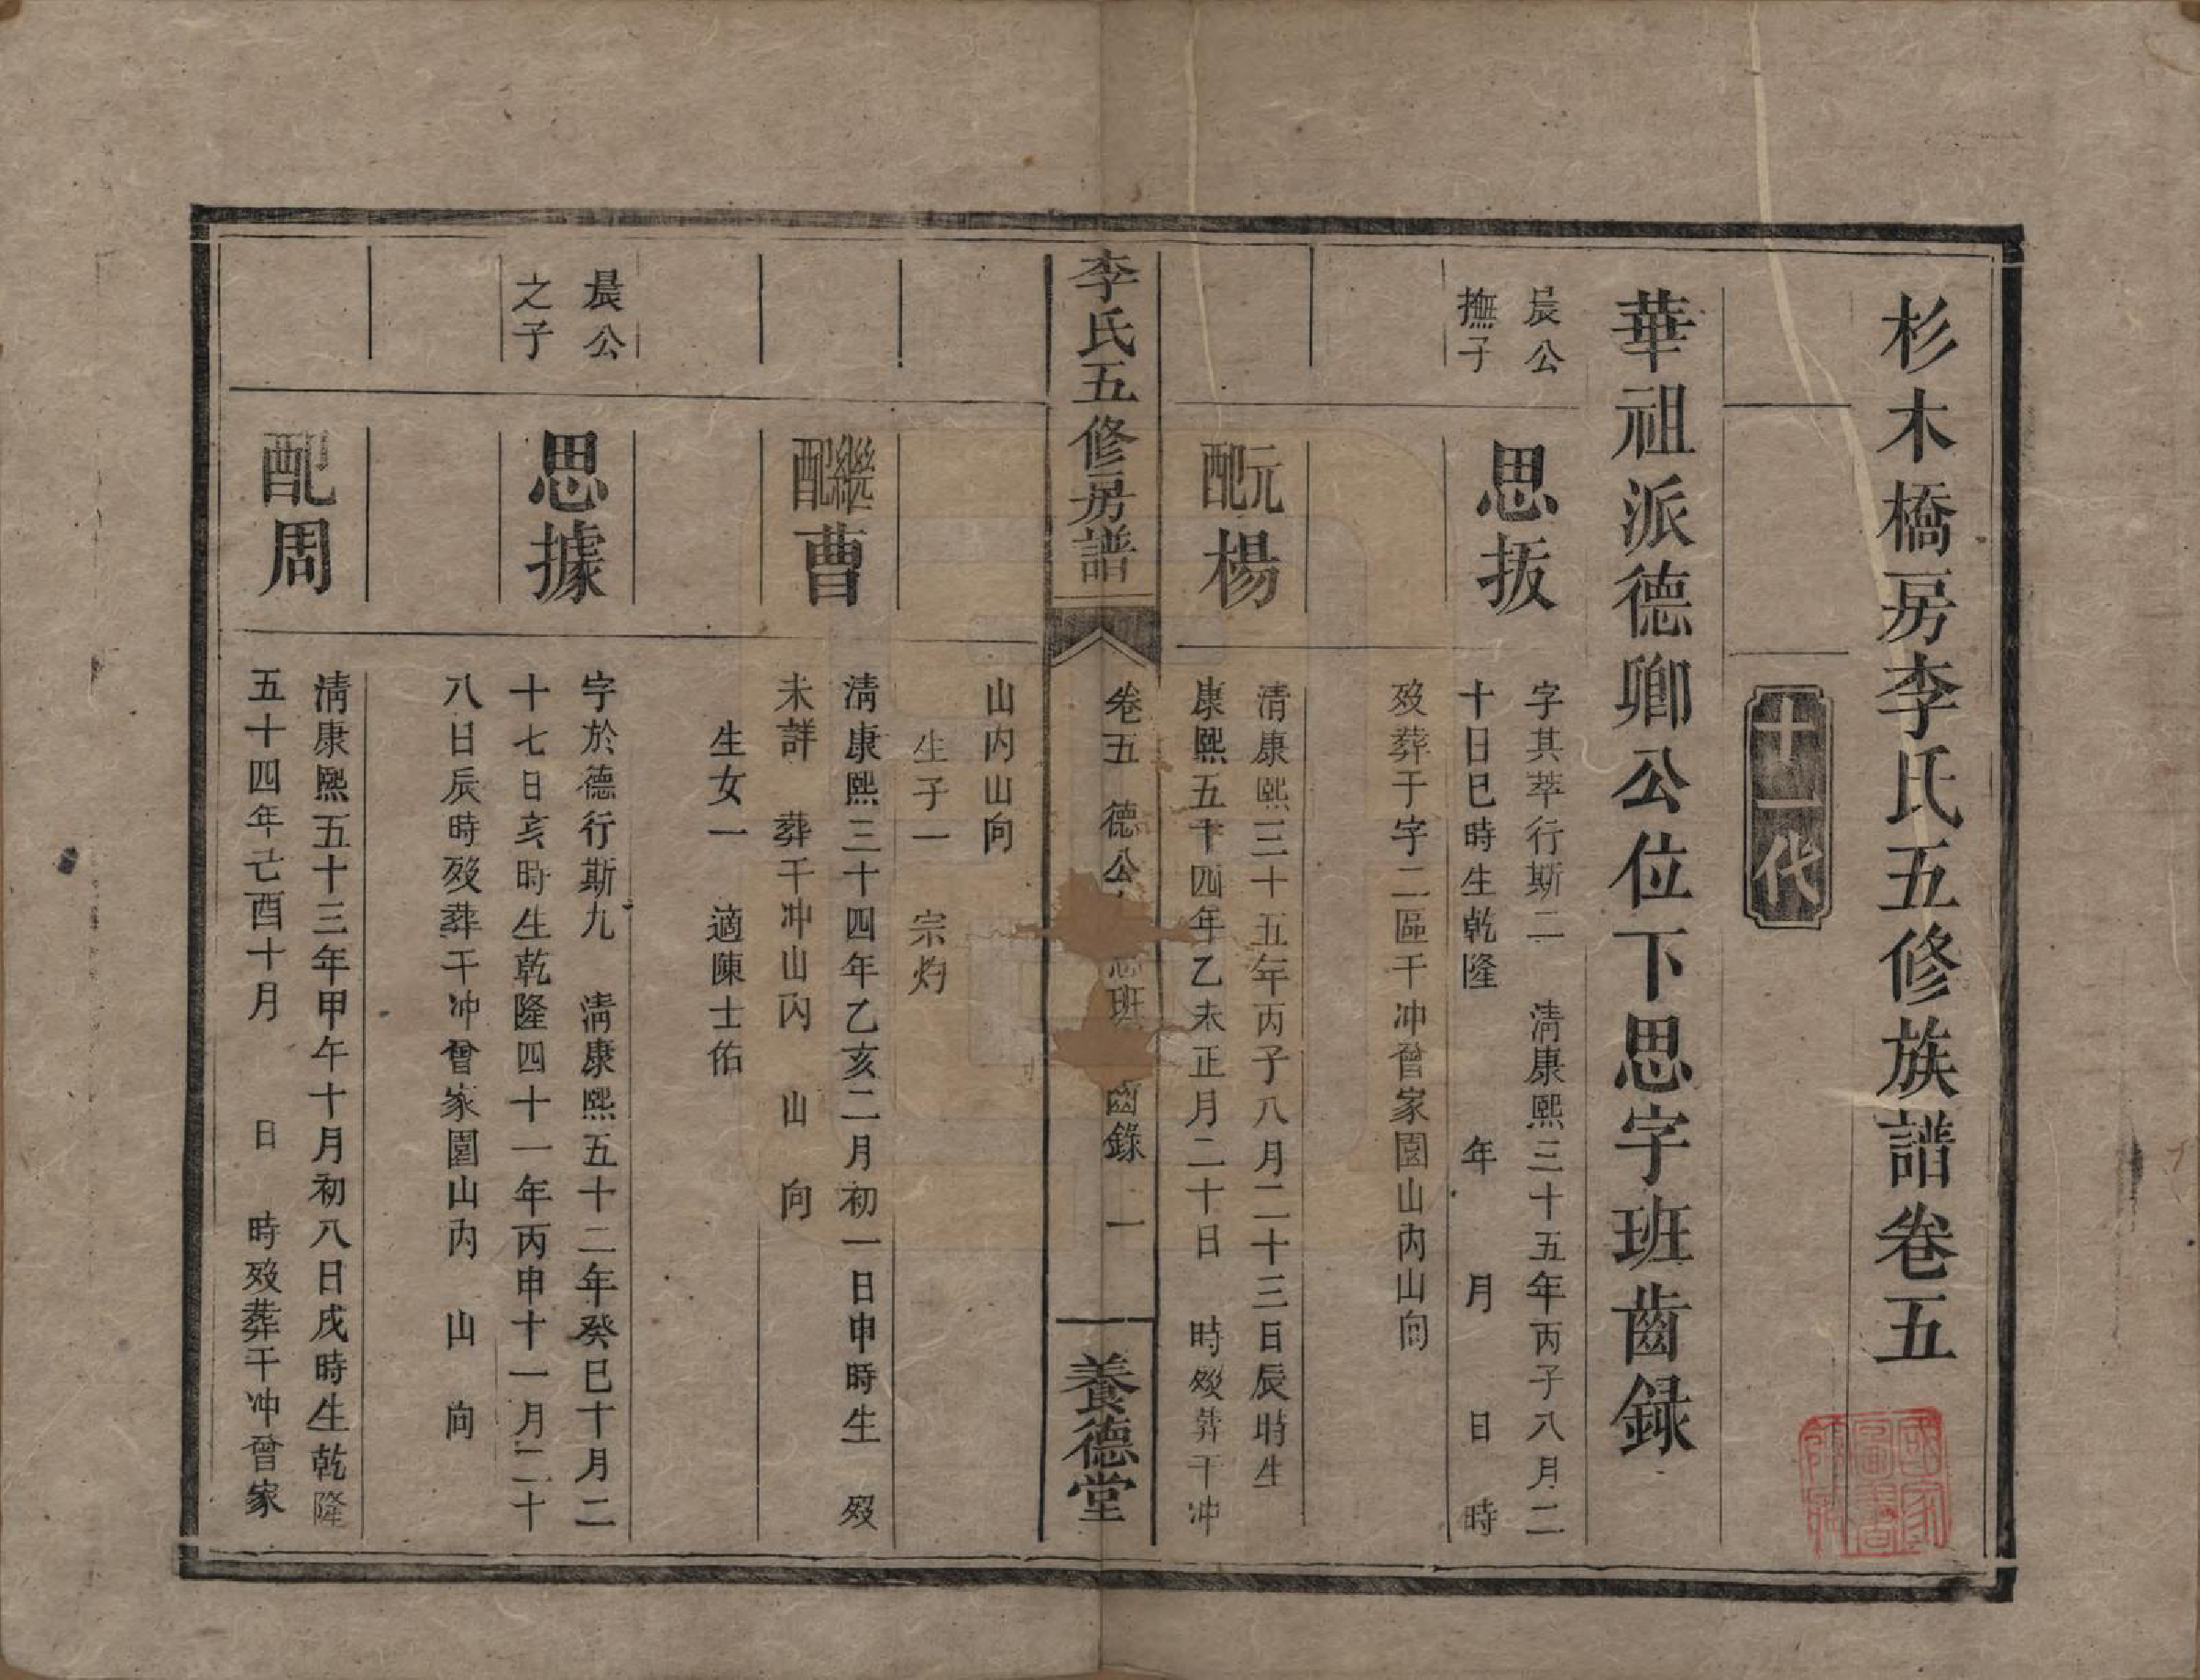 杉木橋房李氏五修族譜卷五
十一代
華祖派德卿公位下思字班齒錄
晨公
撫子
思拔
字其萃行斯二　清康熙三十五年丙子八月二
十日巳時生乾隆　年　月　日　時
歿葬于字二區干冲曾家園山內山向
元配楊
清康熙三十五年丙子八月二十三日辰時生
康熙五十四年乙未正月二十日　時歿葬干冲
李氏五修房譜
卷五　德公　思班　齒錄　一
養德堂
山內山向
生子一　宗灼
繼配曹
清康熙三十四年乙亥二月初一日申時生　歿
未詳　葬干冲山內　山　向
生女一　適陳士佑
晨公
之子
思據
字於德行斯九　清康熙五十二年癸巳十月二
十七日亥時生乾隆四十一年丙申十一月二十
八日辰時歿葬干冲曾家園山內　山　向
配周
清康熙五十三年甲午十月初八日戌時生乾隆
五十四年己酉十月　日　時歿葬干冲曾家
國家圖書館藏